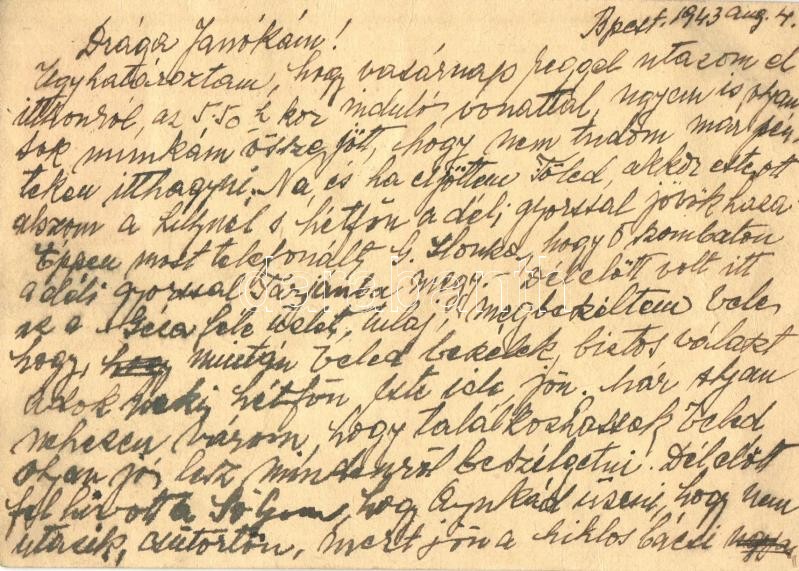 Bpest. 1943 aug. 4.
Drága Janókám!
Úgy határoztam, hogy vasárnap reggel utazom el
itthonról, az 5.50 h kor induló vonattal, ugyanis olyan
sok munkám össze jött, hogy nem tudom már pén-
teken itthagyni. Na és ha eljöttem Tőled, akkor este ott
alszom a s hétfőn a déli gyorssal jövök haza
Éppen most telefonált Ilonka, hogy ő szombaton
a déli gyorssal Tarjánba megy. Délelőtt volt itt
az a Géza féle üzlet tulaj, megbeszéltem vele
hogy, miután Veled beszélek, biztos választ
adok neki, hétfőn este ide jön. Már olyan
nehezen várom, hogy találkozhassak Veled
olyan jó lesz mindenről beszélgetni. Délelőtt
fel hívott a hogy Aynkád üzeni, hogy nem
utazik, csütörtön, mert jön a Miklós bácsi
darabanth